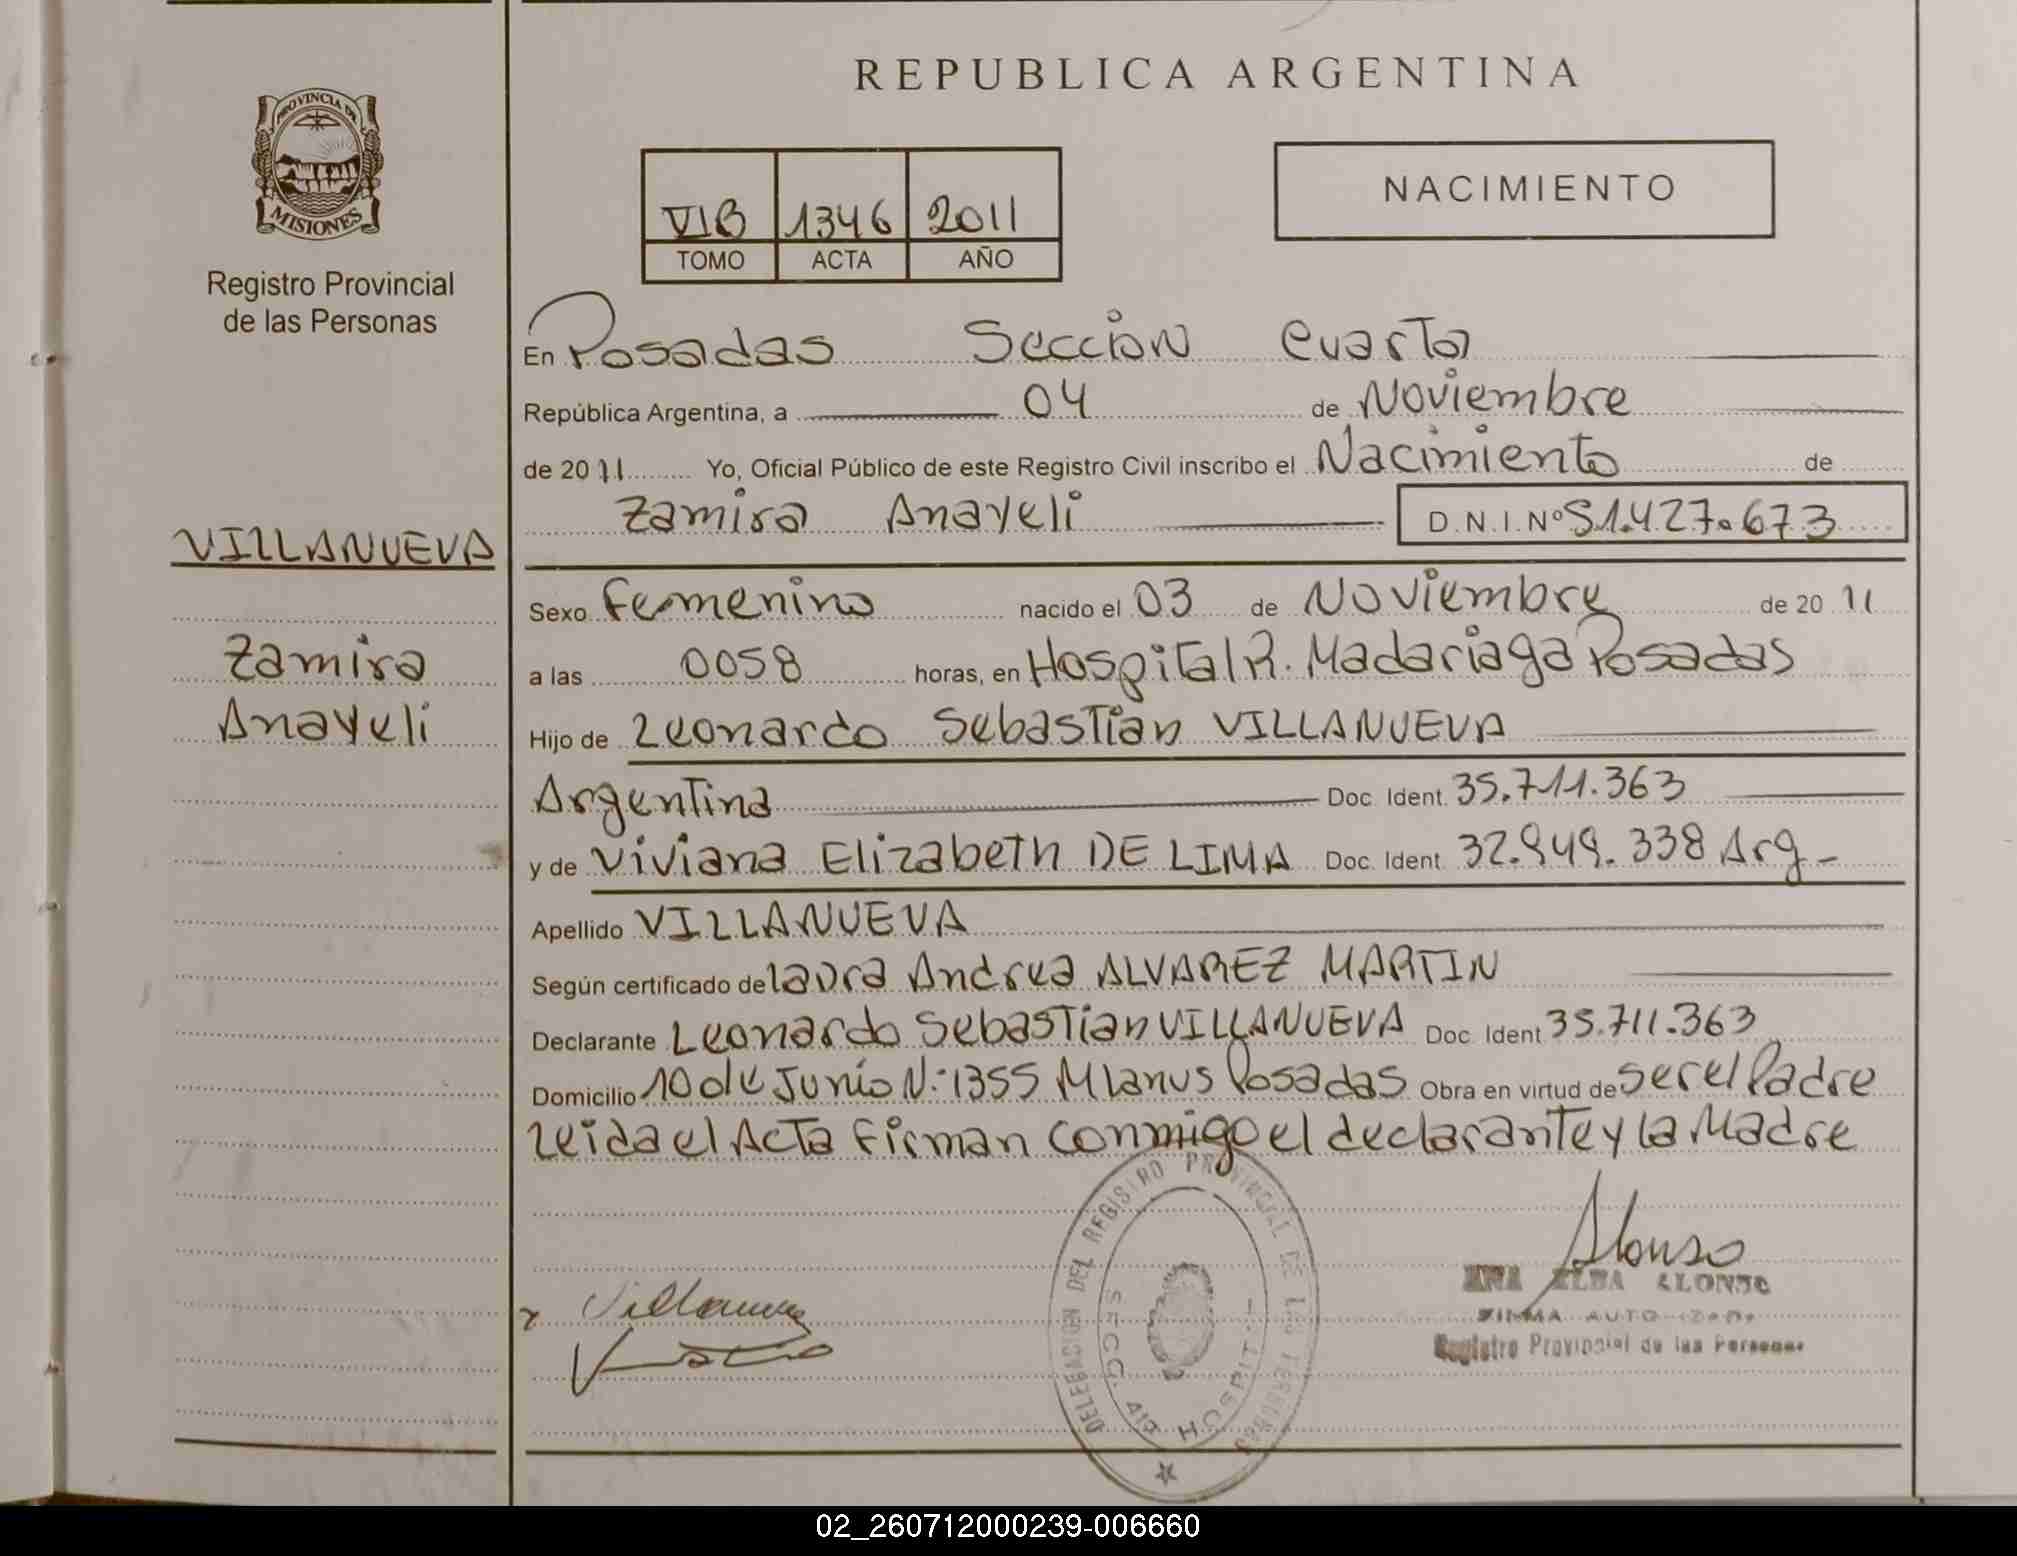 REPUBLICA ARGENTINA
PROVINCIA DE
MISIONES
Registro Provincial
de las Personas
NACIMIENTO
VIB 1346 2011
TOMO ACTA AÑO
En Posadas Sección Cuarta
República Argentina, a 04 de Noviembre
de 2011 Yo, Oficial Público de este Registro Civil inscribo el Nacimiento de
Zamira Anayeli D.N.I. Nº 51.427.673
VILLANUEVA
Zamira
Anayeli
Sexo Femenino nacido el 03 de Noviembre de 2011
a las 0058 horas, en Hospital R. Madariaga Posadas
Hijo de Leonardo Sebastian VILLANUEVA
Argentina Doc. Ident. 35.711.363
y de Viviana Elizabeth DE LIMA Doc. Ident. 32.949.338 Arg-
Apellido VILLANUEVA
Según certificado de Laura Andrea ALVAREZ MARTIN
Declarante Leonardo Sebastian VILLANUEVA Doc. Ident 35.711.363
Domicilio 10 de Junio N.-1355 M Lanus Posadas Obra en virtud de ser el Padre
Leida el Acta Firman conmigo el declarante y la Madre
DELEGACION DEL REGISTRO PROVINCIAL DE LAS PERSONAS
SECC. 4ta HOSPIT.
Alonso
ANA ELBA ALONSO
FIRMA AUTORIZADA
Registro Provincial de las Personas
Villanueva
02_260712000239-006660